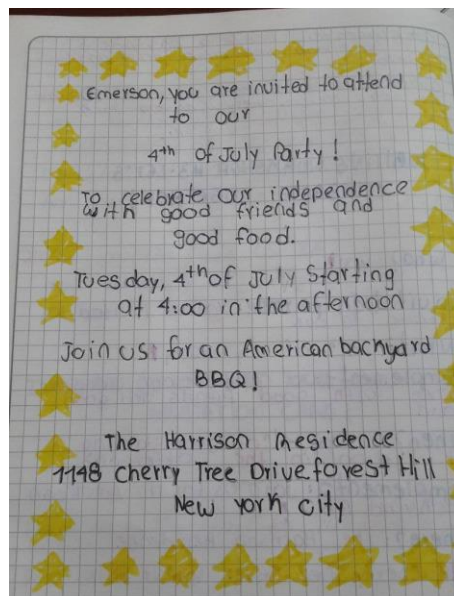 Emerson, you are invited to attend
to our
4th of July Party!
To celebrate our independence
with good friends and
good food.
Tuesday, 4th of July Starting
at 4:00 in the afternoon
Join us for an American bachyard
BBQ!
The Harrison Residence
1148 Cherry Tree Drive forest Hill
New york city